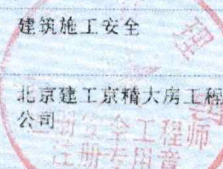 建筑施工安全
北京建工京精大房工程
公司
注册安全工程师
注册专用章